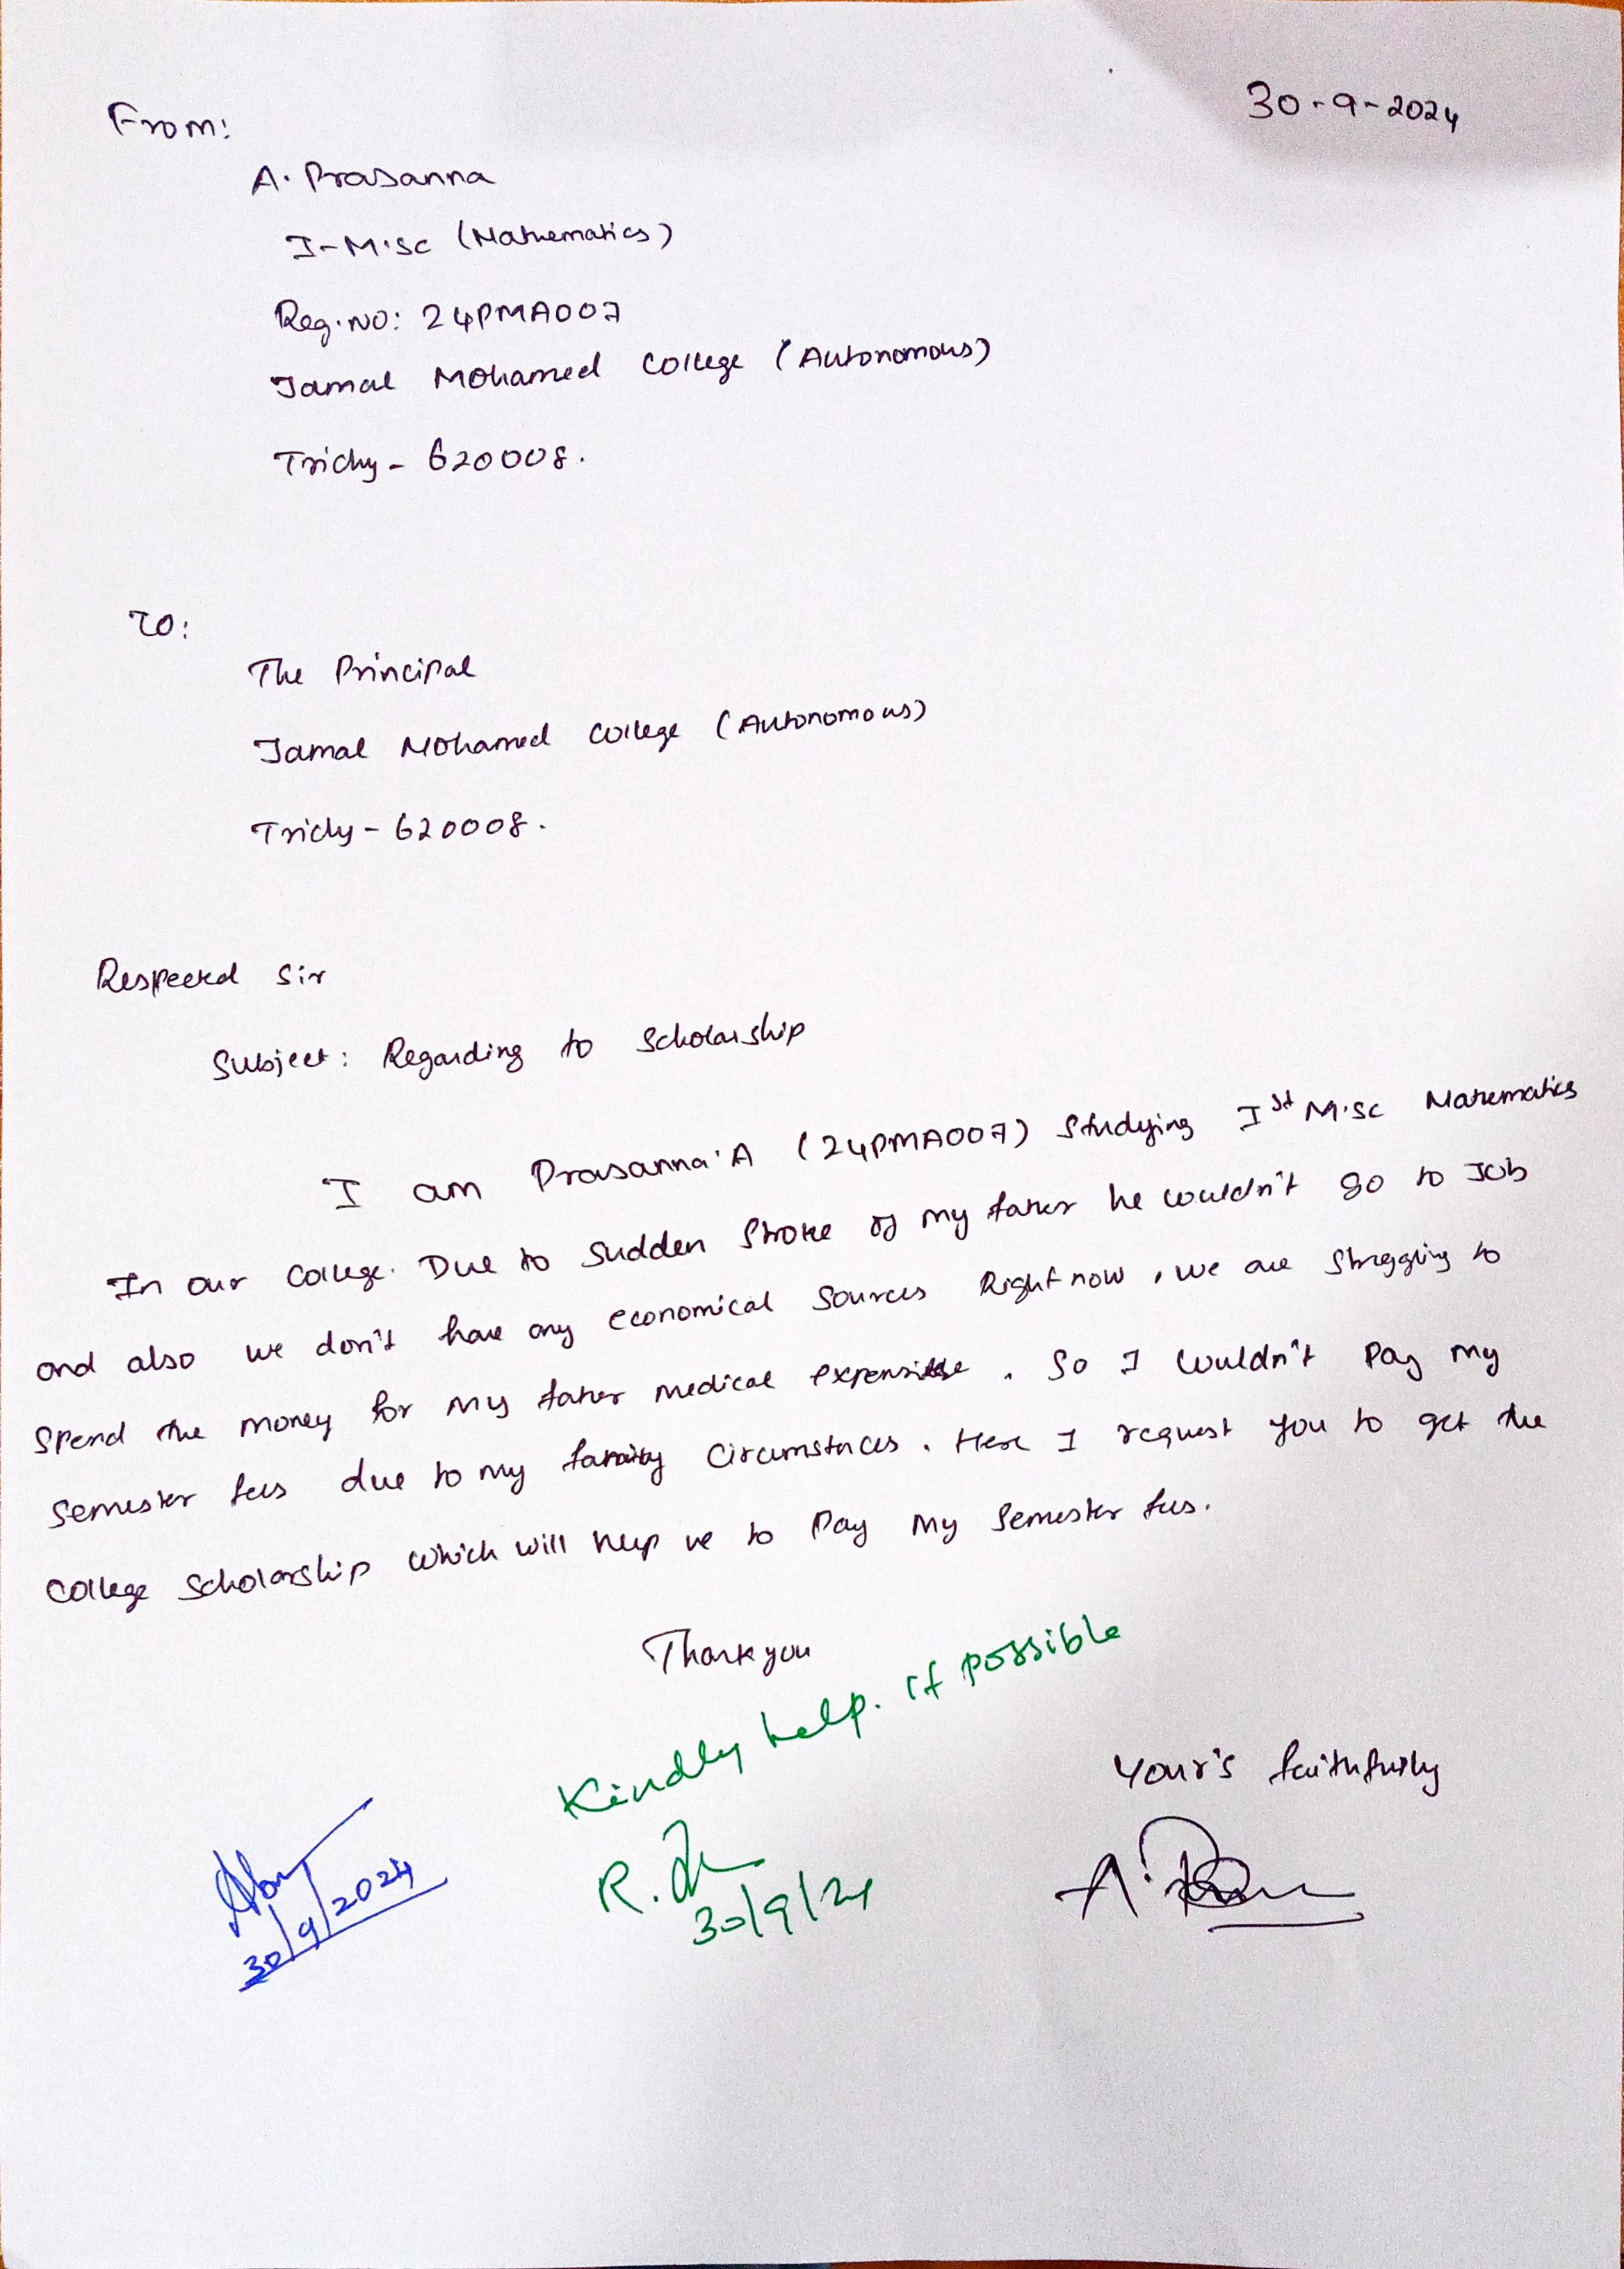 30-9-2024
From:
A. Prasanna
I-M.Sc (Mathematics)
Reg.No: 24PMA007
Jamal Mohamed College (Autonomous)
Trichy - 620008.
To:
The Principal
Jamal Mohamed College (Autonomous)
Trichy - 620008.
Respected Sir
Subject: Regarding to Scholarship
I am Prasanna.A (24PMA007) Studying Ist M.Sc Mathematics
In our College. Due to Sudden Stroke of my father he wouldn't go to Job
and also we don't have any economical Sources Right now, we are Struggling to
Spend the money for my father medical expensise. So I wouldn't Pay my
Semester fees due to my family Circumstnces. Here I request you to get the
College Scholarship which will help me to Pay my Semester fees.
Thank you
Kindly help. if possible
Your's faithfully
R.
30/9/24
30/9/2024